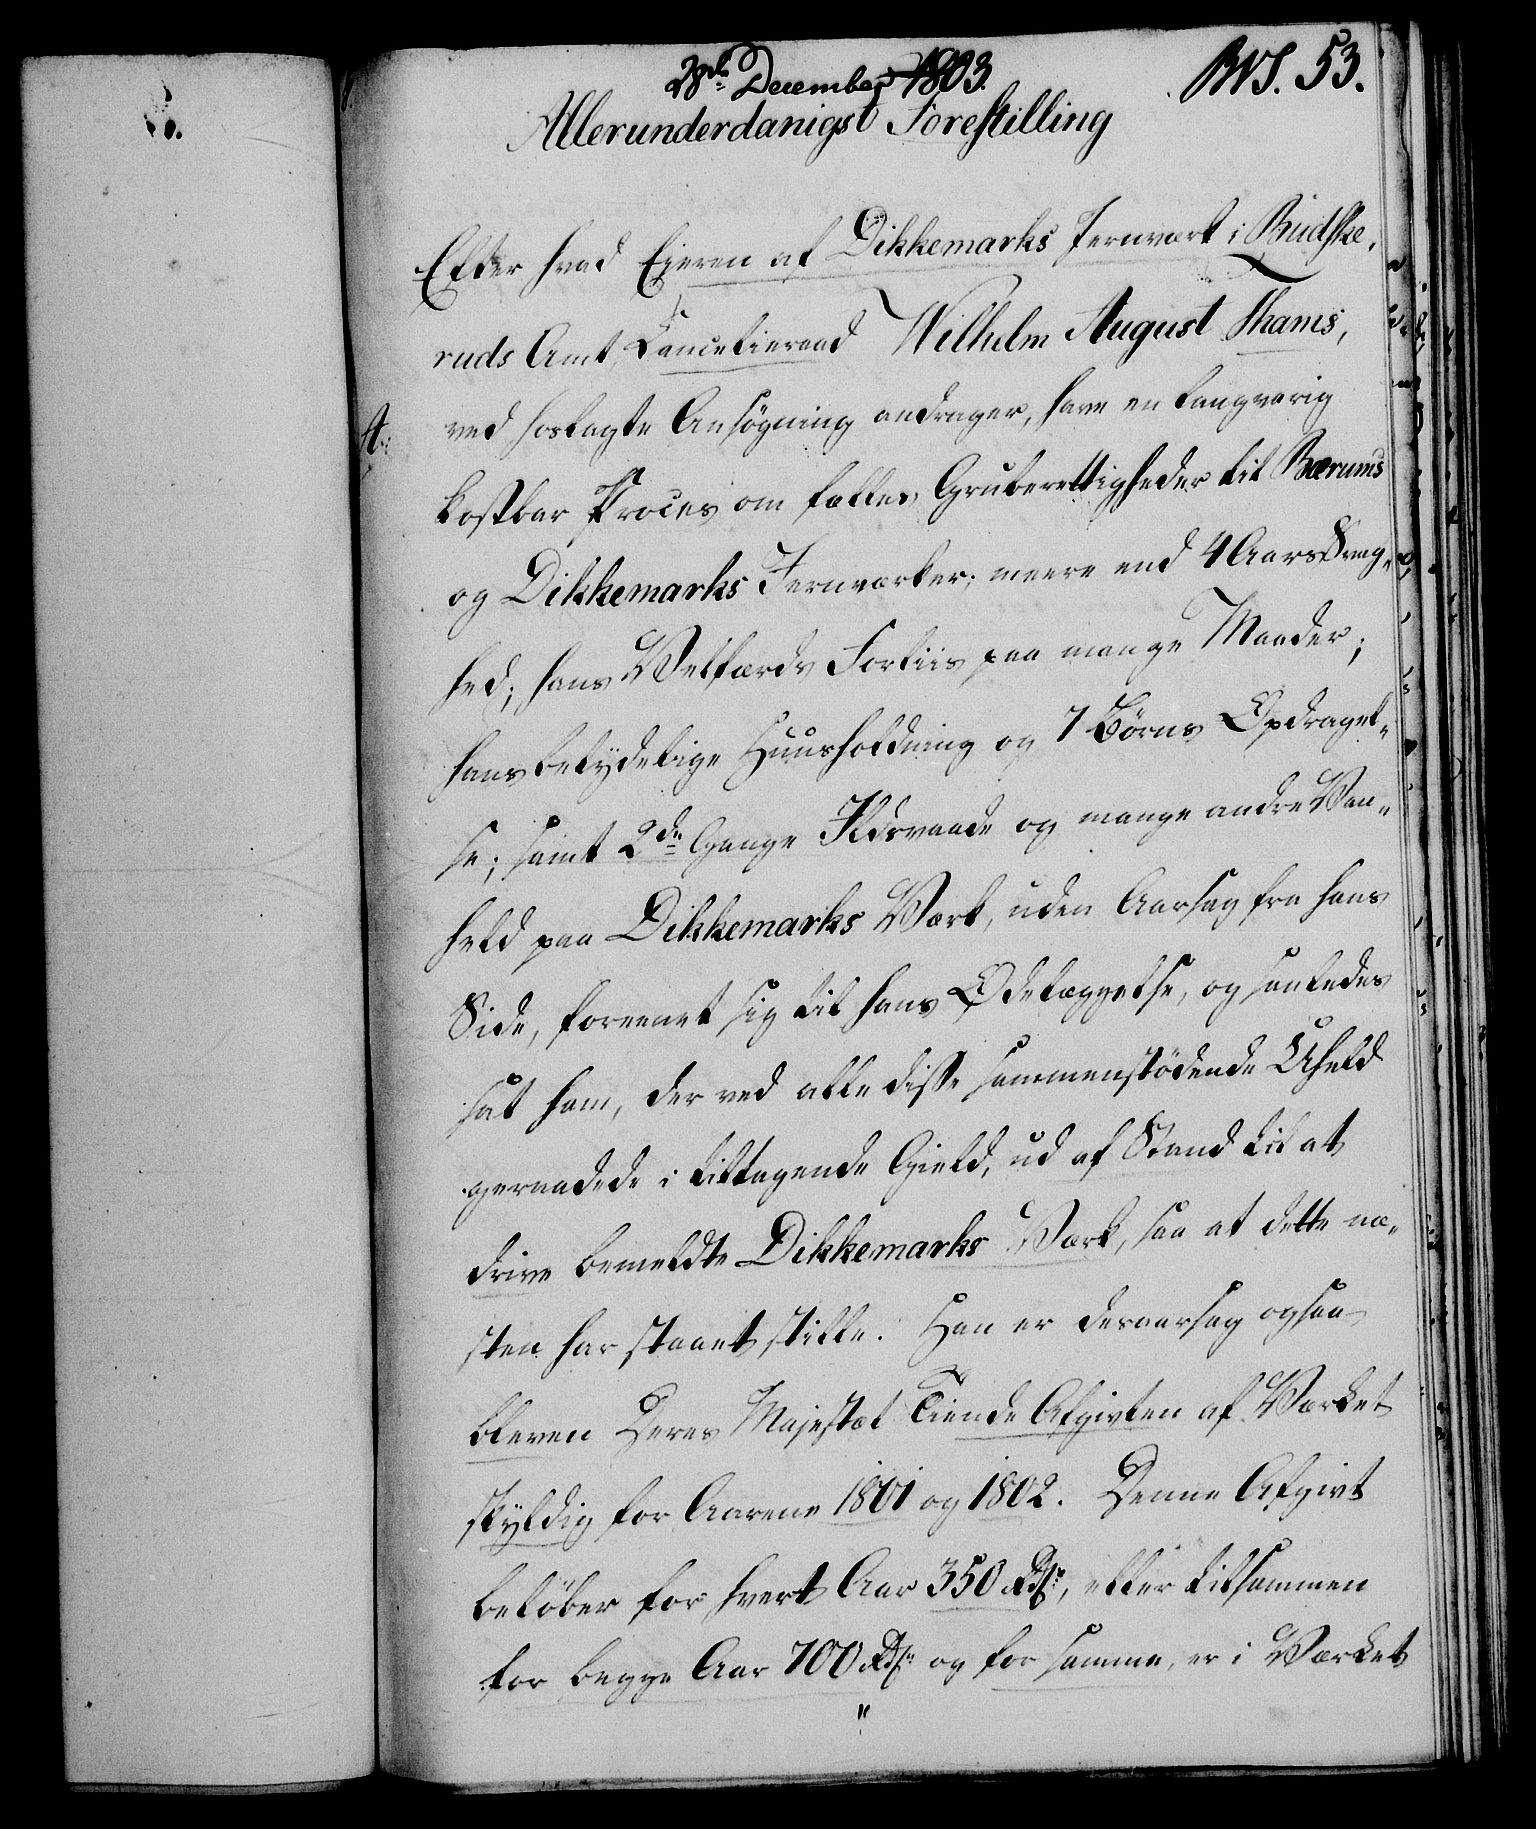 28de December 1803.
BVS. 53.
Allerunderdanigst Forestilling
Efter hvad Eieren af Dikkemarks Jernværk i Budske-
ruds Amt Cancelieraad Wilhelm August Thams,
A: ved hoslagte Ansøgning andrager, have en langvarig
kostbar Proces om fælles Gruberettigheder til Bærums
og Dikkemarks Jernværker; meere end 4 Aars Svag-
hed; hans Velfærds Forliis paa mange Maader;
hans betydelige Huusholdning og 7 Børns Opdragel-
se; samt 2de Gange Ildsvaade og mange andre Van-
held paa Dikkemarks Værk, uden Aarsag fra hans
Side, foreenet sig til hans Ødelæggelse, og saaledes
sat ham, der ved alle disse sammenstødende Uheld
geraadede i tiltagende Gield, ud af Stand til at
drive bemeldte Dikkemarks Værk, saa at dette næ-
sten har staaet stille. Han er desaarsag ogsaa
bleven Deres Majestæt Tiende Afgivten af Værket
skyldig for Aarene 1801 og 1802. Denne Afgivt
beløber for hvert Aar 350 Rdr, eller tilsammen
for begge Aar 700 Rdr og for samme, er i Værket
"